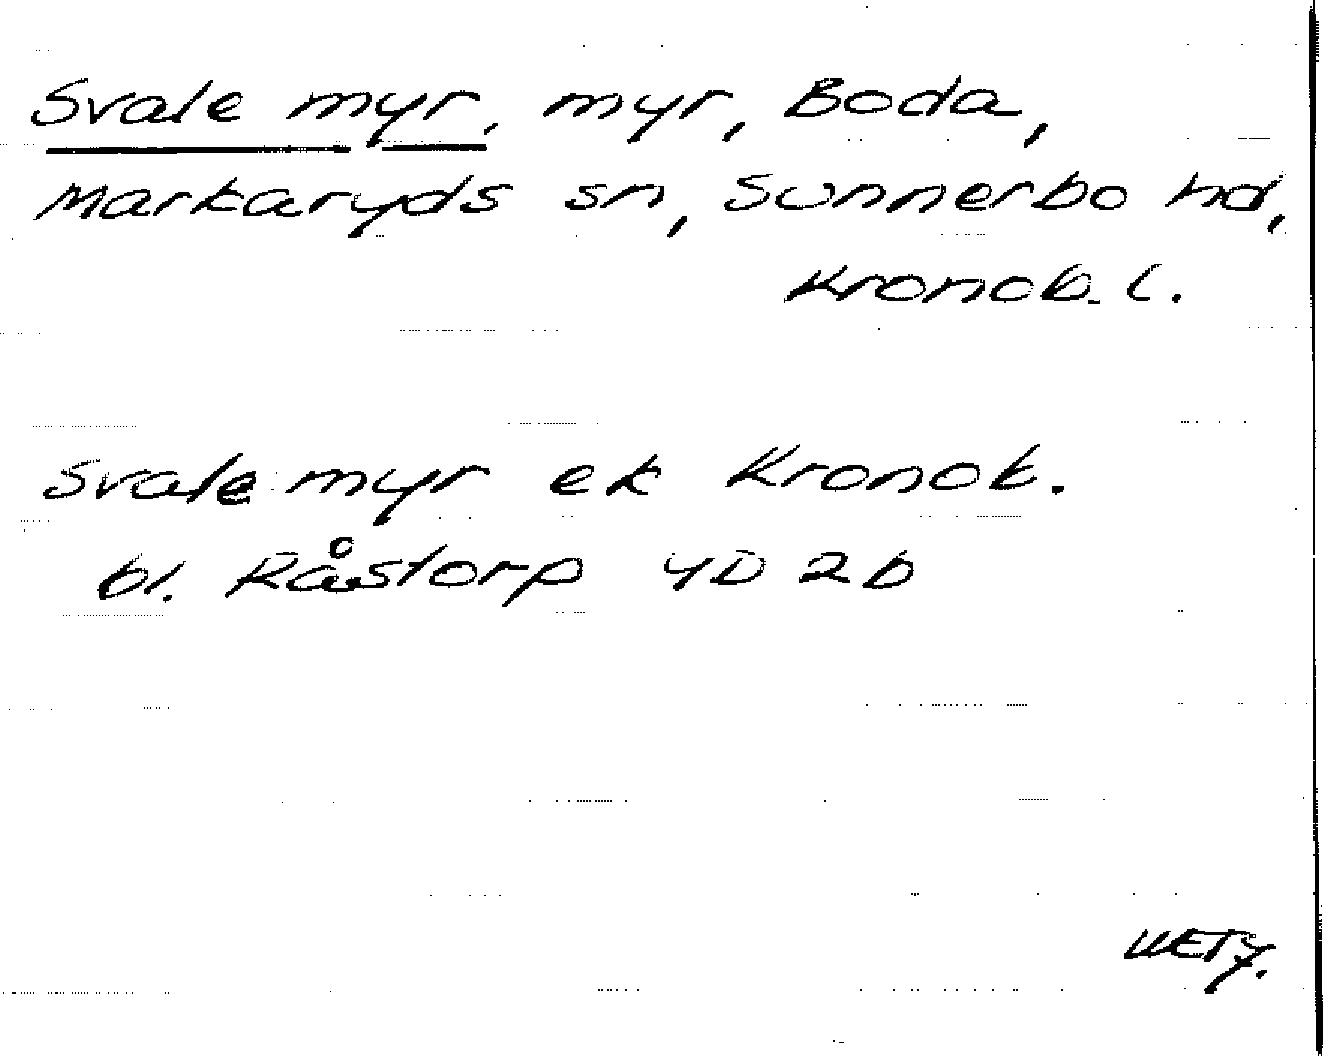 Svale myr, myr, Boda,
Markaryds sn, Sunnerbo hd,
Kronob. l.
Svale myr ek Kronob.
bl. Råstorp 4D 2b